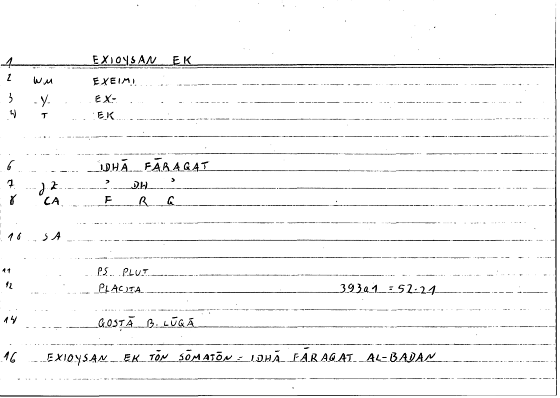 1 EXIOYSAN EK
2 WM EXEIMI
3 Y. EX-
4 T EK
6 IDHĀ FĀRAQAT
7 JZ ʾ DH ʾ
8 CA F R Q
10 SA
11 PS. PLUT
12 PLACITA 393a1 = 52.21
14 QOSṬĀ B. LŪQĀ
16 EXIOYSAN EK TŌN SŌMATŌN = IDHĀ FĀRAQAT AL-BADAN